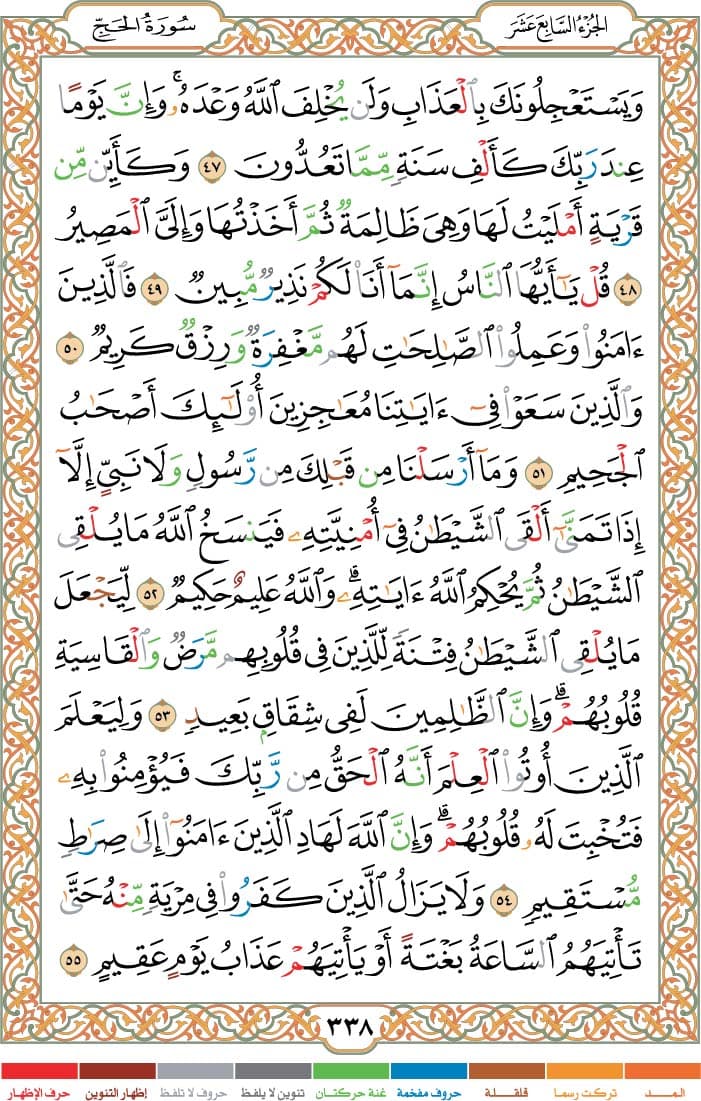 الجُزْءُ السَّابِعَ عَشَرَ
سُورَةُ الحَجِّ
وَيَسْتَعْجِلُونَكَ بِٱلْعَذَابِ وَلَن يُخْلِفَ ٱللَّهُ وَعْدَهُۥۚ وَإِنَّ يَوْمًا
عِندَ رَبِّكَ كَأَلْفِ سَنَةٍ مِّمَّا تَعُدُّونَ ٤٧ وَكَأَيِّن مِّن
قَرْيَةٍ أَمْلَيْتُ لَهَا وَهِىَ ظَالِمَةٌ ثُمَّ أَخَذْتُهَا وَإِلَىَّ ٱلْمَصِيرُ
٤٨ قُلْ يَٰٓأَيُّهَا ٱلنَّاسُ إِنَّمَآ أَنَا۠ لَكُمْ نَذِيرٌ مُّبِينٌ ٤٩ فَٱلَّذِينَ
ءَامَنُوا۟ وَعَمِلُوا۟ ٱلصَّٰلِحَٰتِ لَهُم مَّغْفِرَةٌ وَرِزْقٌ كَرِيمٌ ٥٠
وَٱلَّذِينَ سَعَوْا۟ فِىٓ ءَايَٰتِنَا مُعَٰجِزِينَ أُو۟لَٰٓئِكَ أَصْحَٰبُ
ٱلْجَحِيمِ ٥١ وَمَآ أَرْسَلْنَا مِن قَبْلِكَ مِن رَّسُولٍ وَلَا نَبِىٍّ إِلَّآ
إِذَا تَمَنَّىٰٓ أَلْقَى ٱلشَّيْطَٰنُ فِىٓ أُمْنِيَّتِهِۦ فَيَنسَخُ ٱللَّهُ مَا يُلْقِى
ٱلشَّيْطَٰنُ ثُمَّ يُحْكِمُ ٱللَّهُ ءَايَٰتِهِۦۗ وَٱللَّهُ عَلِيمٌ حَكِيمٌ ٥٢ لِّيَجْعَلَ
مَا يُلْقِى ٱلشَّيْطَٰنُ فِتْنَةً لِّلَّذِينَ فِى قُلُوبِهِم مَّرَضٌ وَٱلْقَاسِيَةِ
قُلُوبُهُمْۗ وَإِنَّ ٱلظَّٰلِمِينَ لَفِى شِقَاقٍۭ بَعِيدٍ ٥٣ وَلِيَعْلَمَ
ٱلَّذِينَ أُوتُوا۟ ٱلْعِلْمَ أَنَّهُ ٱلْحَقُّ مِن رَّبِّكَ فَيُؤْمِنُوا۟ بِهِۦ
فَتُخْبِتَ لَهُۥ قُلُوبُهُمْۗ وَإِنَّ ٱللَّهَ لَهَادِ ٱلَّذِينَ ءَامَنُوٓا۟ إِلَىٰ صِرَٰطٍ
مُّسْتَقِيمٍ ٥٤ وَلَا يَزَالُ ٱلَّذِينَ كَفَرُوا۟ فِى مِرْيَةٍ مِّنْهُ حَتَّىٰ
تَأْتِيَهُمُ ٱلسَّاعَةُ بَغْتَةً أَوْ يَأْتِيَهُمْ عَذَابُ يَوْمٍ عَقِيمٍ ٥٥
٣٣٨
المـــد تركت رسما قلقلة حروف مفخمة غنة حركتان تنوين لا يلفظ حروف لا تلفظ إظهار التنوين حرف الإظهار